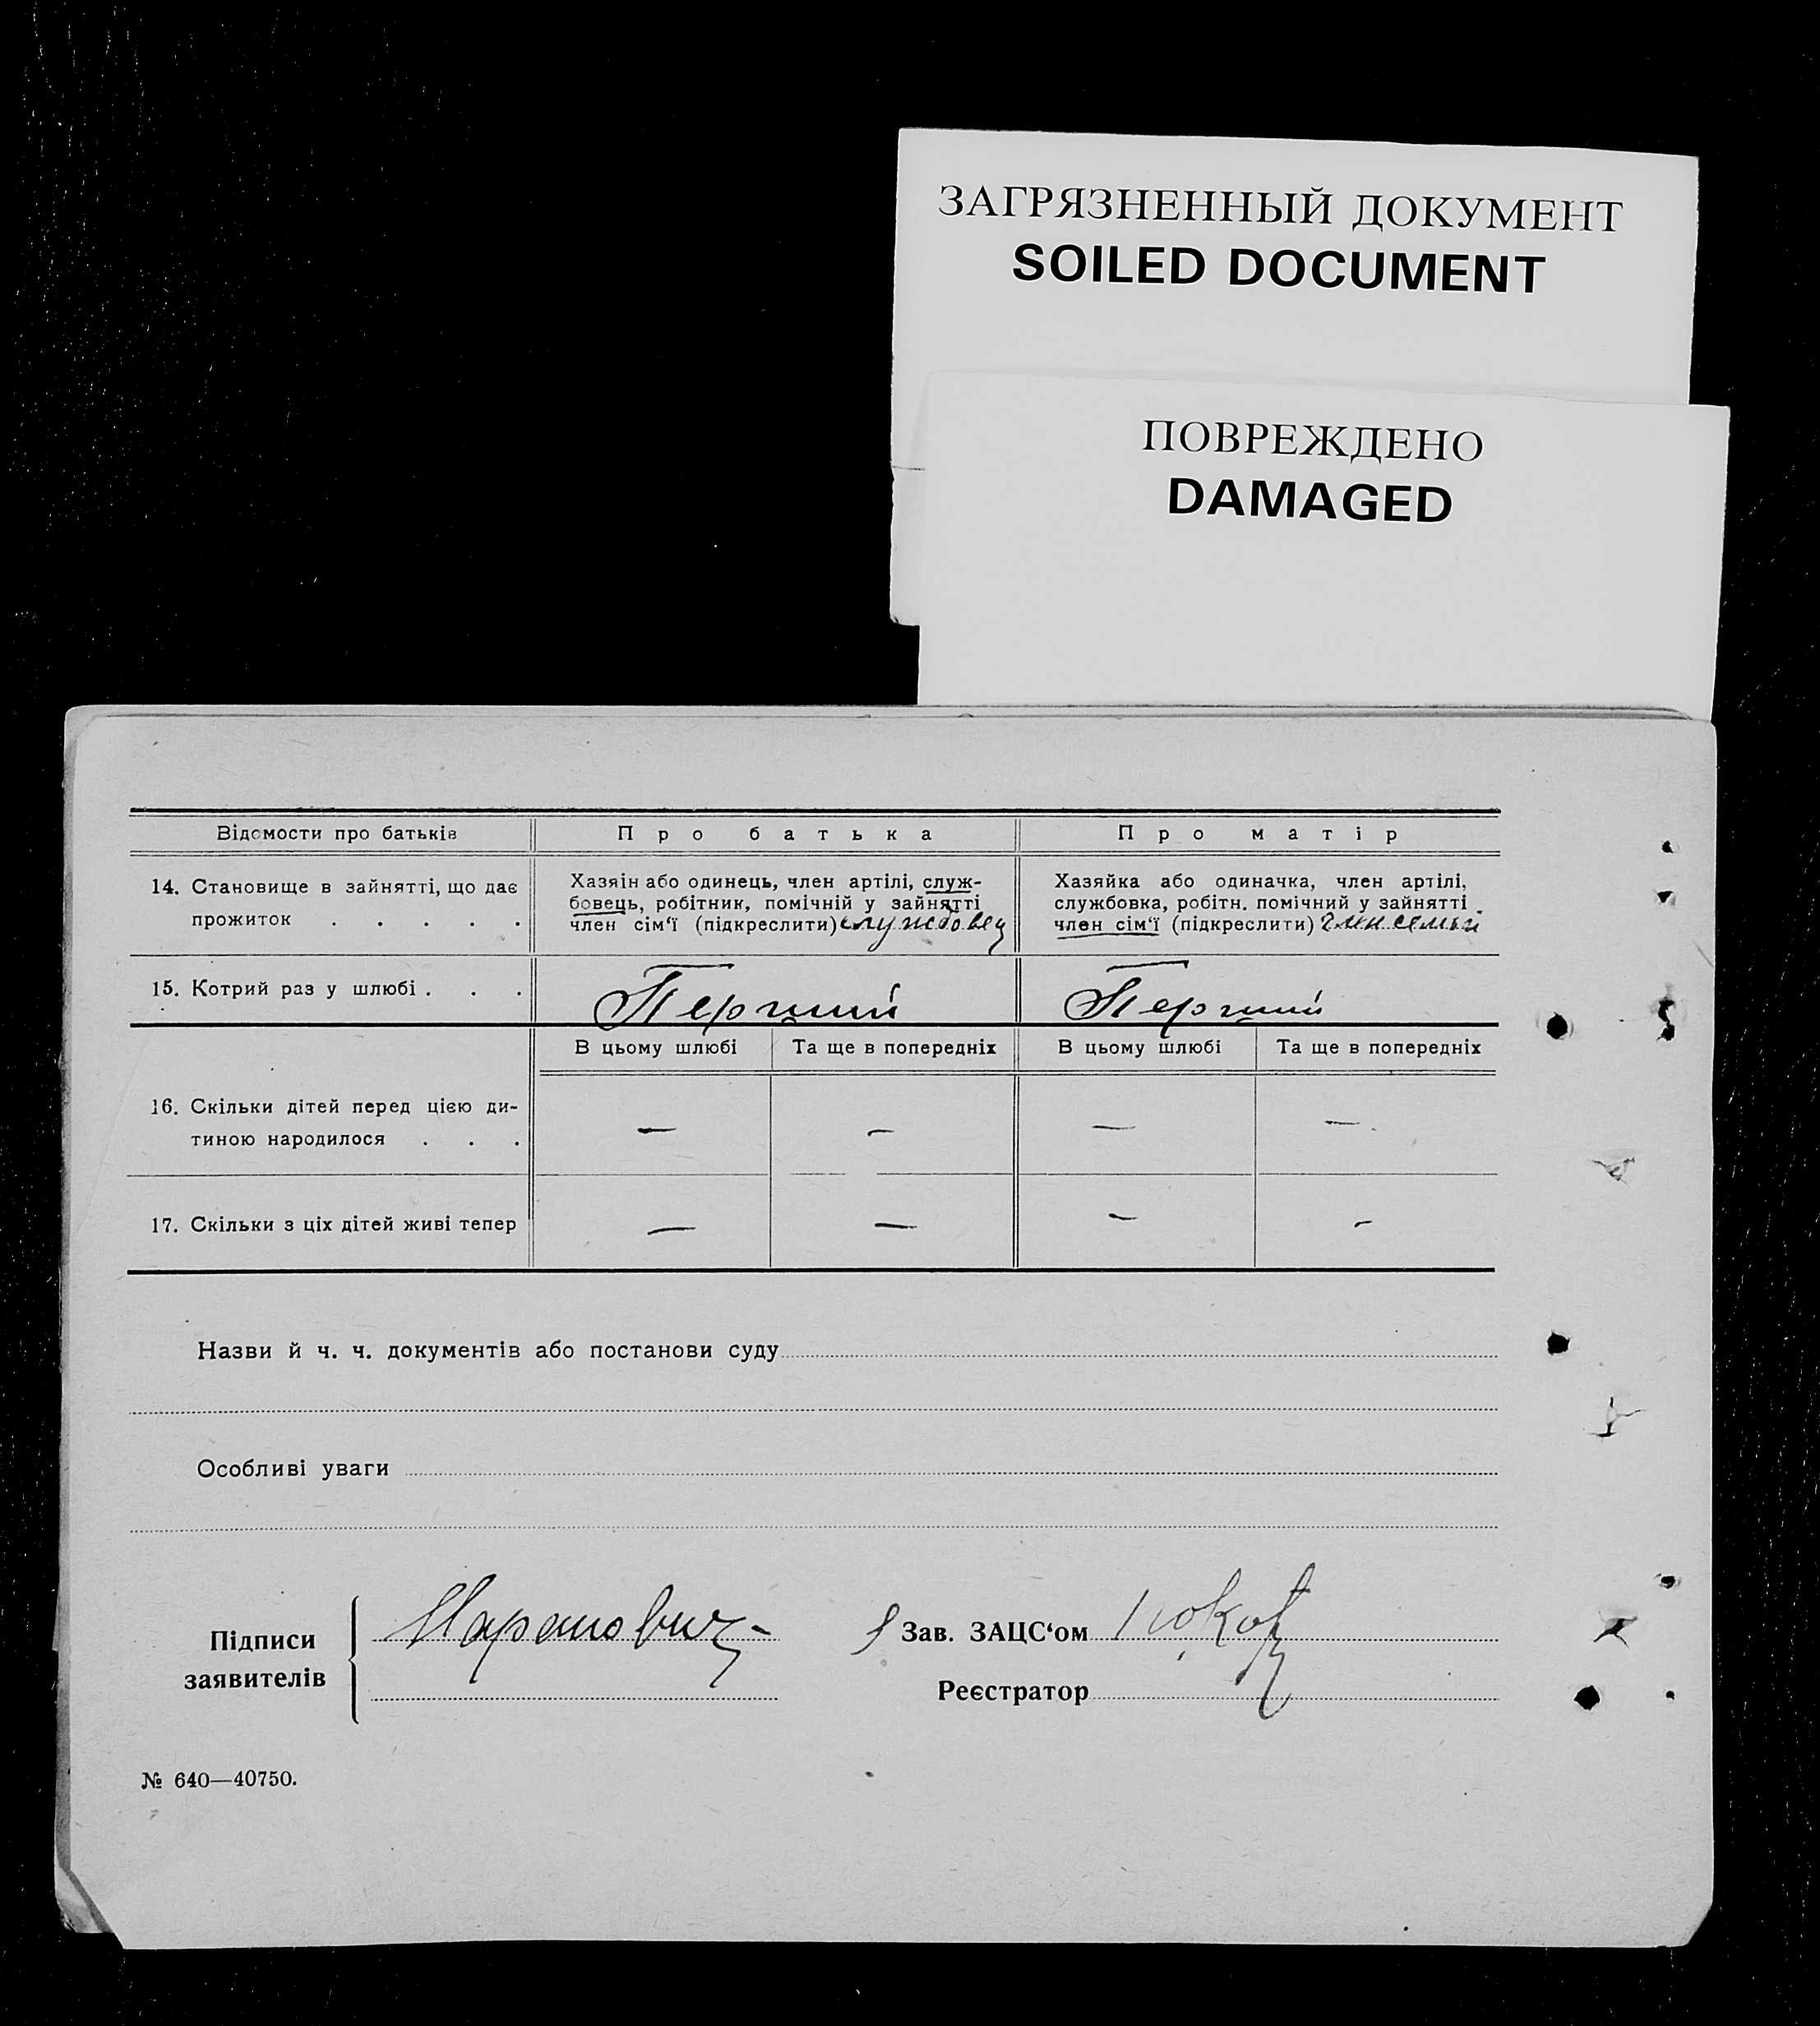 ЗАГРЯЗНЕННЫЙ ДОКУМЕНТ
SOILED DOCUMENT
ПОВРЕЖДЕНО
DAMAGED
Відомости про батьків Про батька Про матір
14. Становище в зайнятті, що дає
прожиток . . . . .
Хазяін або одинець, член артілі, служ-
бовець, робітник, помічній у зайнятті
член сім‘ї (підкреслити) службовец
Хазяйка або одиначка, член артілі,
службовка, робітн. помічний у зайнятті
член сім‘ї (підкреслити) член семьи
15. Котрий раз у шлюбі . . . Перший Перший
В цьому шлюбі Та ще в попередніх В цьому шлюбі Та ще в попередніх
16. Скільки дітей перед цією ди-
тиною народилося . . . — — — —
17. Скільки з ціх дітей живі тепер — — — —
Назви й ч. ч. документів або постанови суду
Особливі уваги
Підписи
заявителів
Зав. ЗАЦС‘ом
Реєстратор
№ 640—40750.